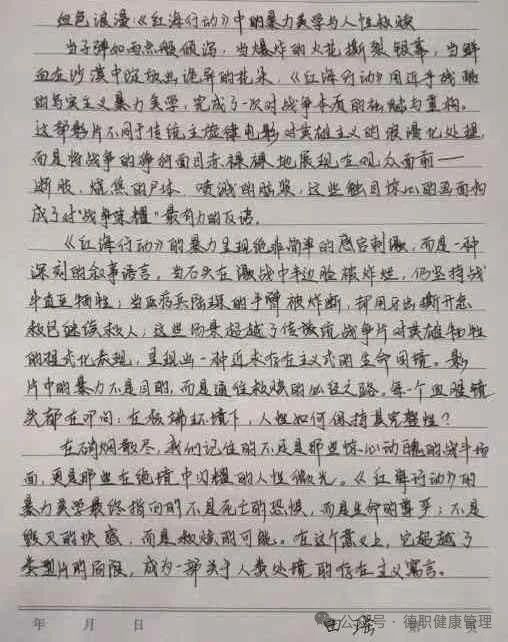 血色浪漫：《红海行动》中的暴力美学与人性救赎
当子弹如雨点般倾泻，当爆炸的火花撕裂银幕，当鲜
血在沙漠中绽放出诡异的花朵，《红海行动》用近乎残酷
的写实主义暴力美学，完成了一次对战争本质的祛魅与重构。
这部影片不同于传统主旋律电影对英雄主义的浪漫化处理，
而是将战争的狰狞面目赤裸裸地展现在观众面前——
断肢，烧焦的尸体，喷溅的脑浆，这些触目惊心的画面构
成了对"战争荣耀"最有力的反讽。
《红海行动》的暴力呈现绝非简单的感官刺激，而是一种
深刻的叙事语言。当石头在激战中半边脸被炸烂，仍坚持战
斗直至牺牲；当医疗兵陆琛的手臂被炸断，却用牙齿撕开急
救包继续救人，这些场景超越了传统战争片对英雄牺牲
的程式化表现，呈现出一种近乎存在主义式的生命困境。影
片中的暴力不是目的，而是通往救赎的必经之路。每一个血腥镜
头都在叩问：在极端环境下，人性如何保持其完整性？
在硝烟散尽，我们记住的不只是那些惊心动魄的战斗场
面，更是那些在绝境中闪耀的人性微光。《红海行动》的
暴力美学最终指向的不是死亡的恐惧，而是生命的尊严；不是
毁灭的快感，而是救赎的可能。在这个意义上，它超越了
类型片的局限，成为一部关于人类处境的存在主义寓言。
年 月 日 第 页
公众号·德职健康管理